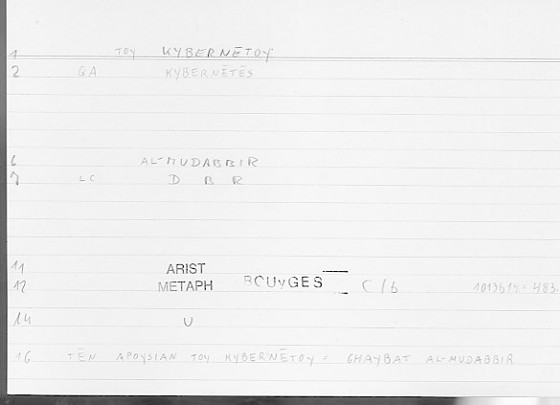 1 TOY KYBERNĒTOY
2 QA KYBERNĒTĒS
6 AL-MUDABBIR
7 LC D B R
11 ARIST
12 METAPH BOUYGES C/b 1013b14 = 483.
14 U
16 TĒN APOYSIAN TOY KYBERNĒTOY = GHAYBAT AL-MUDABBIR